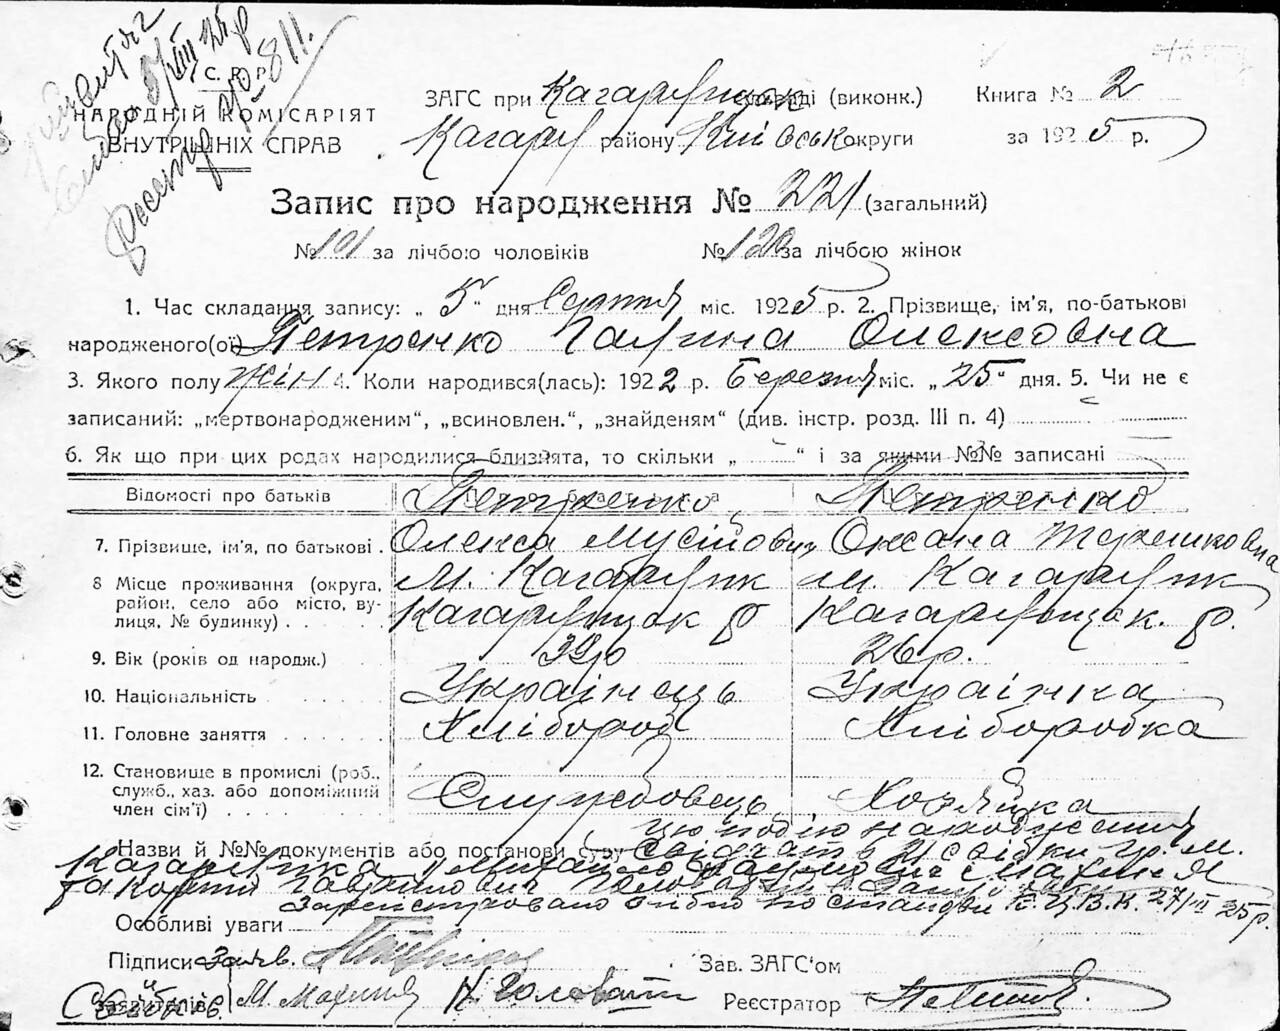 С. Р. Р.
НАРОДНІЙ КОМІСАРІЯТ
ВНУТРІШНІХ СПРАВ
ЗАГС при Кагарлицьк раді (виконк.) Книга № 2
Кагарл району Київськ округи за 1925 р.
Запис про народження № 221 (загальний)
№ 101 за лічбою чоловіків № 120 за лічбою жінок
1. Час складання запису: „ 5 “ дня Серпня міс. 1925 р. 2. Прізвище, ім'я, по-батькові
народженого(ої) Петренко Галина Олексовна
3. Якого полу жін 4. Коли народився(лась): 1922 р. Березня міс. „ 25 “ дня. 5. Чи не є
записаний: „мертвонародженим“, „всиновлен.“, „знайденям“ (див. інстр. розд. III п. 4)
6. Як що при цих родах народилися близнята, то скільки „ “ і за якими №№ записані
Відомості про батьків Петренко Петренко
7. Прізвище, ім'я, по батькові . Олекса Мусійович Оксана Терешковна
8 Місце проживання (округа, м. Кагарлик м. Кагарлик
район, село або місто, ву-
лиця, № будинку) . . . . Кагарлицьк р Кагарлицьк. р.
9. Вік (років од народж.) 39 р 26 р.
10. Національність Українець Українка
11. Головне заняття . . . . . . Хлібороб Хліборобка
12. Становище в промислі (роб.,
служб., хаз. або допоміжний Службовець Хозяйка
член сім'ї) . . . . . . . .
цю подію народження
Назви й №№ документів або постанови суду свідчать свідки гр. м.
Кагарлика Михайло Махиня
та Гаврилович
Зареєстровано згідно постанови 27/III 25р.
Особливі уваги
Підписи заяв. Зав. ЗАГС'ом
заявителів М. Махиня К Головат Реєстратор